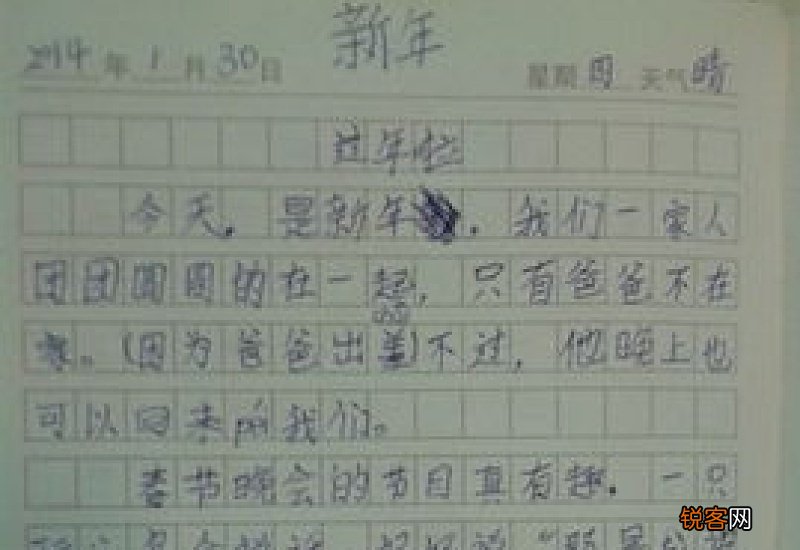 新年
2014年1月30日 星期四 天气晴
过年啦
今天,是新年,我们一家人
团团圆圆的在一起,只有爸爸不在
家。(因为爸爸出差)不过,他晚上也
可以回来陪我们。
春节晚会的节目真有趣。一只
锐客网